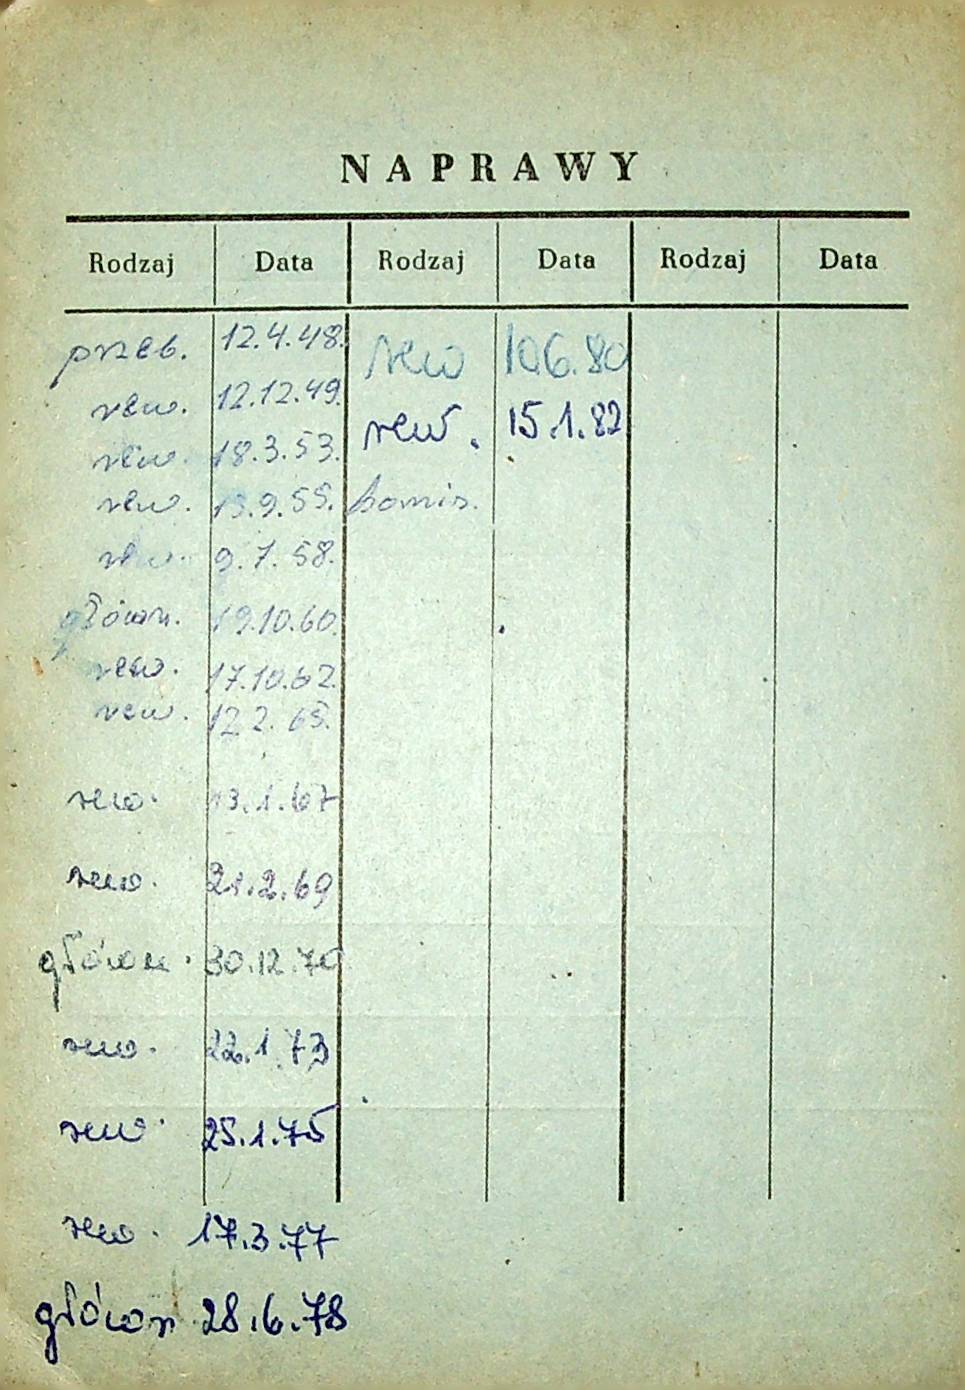 NAPRAWY
Rodzaj Data Rodzaj Data Rodzaj Data
przeb. 12.4.48. rew 10.6.80
rew. 12.12.49. rew. 15.1.82
rew. 18.3.53.
rew. 13.9.55. komis.
rew. 9.7.58.
główn. 19.10.60.
rew. 17.10.62.
rew. 12.2.65.
rew. 13.1.67
rew. 21.2.69
główn. 30.12.70
rew. 22.1.73
rew. 25.1.75
rew. 17.3.77
główn 28.6.78